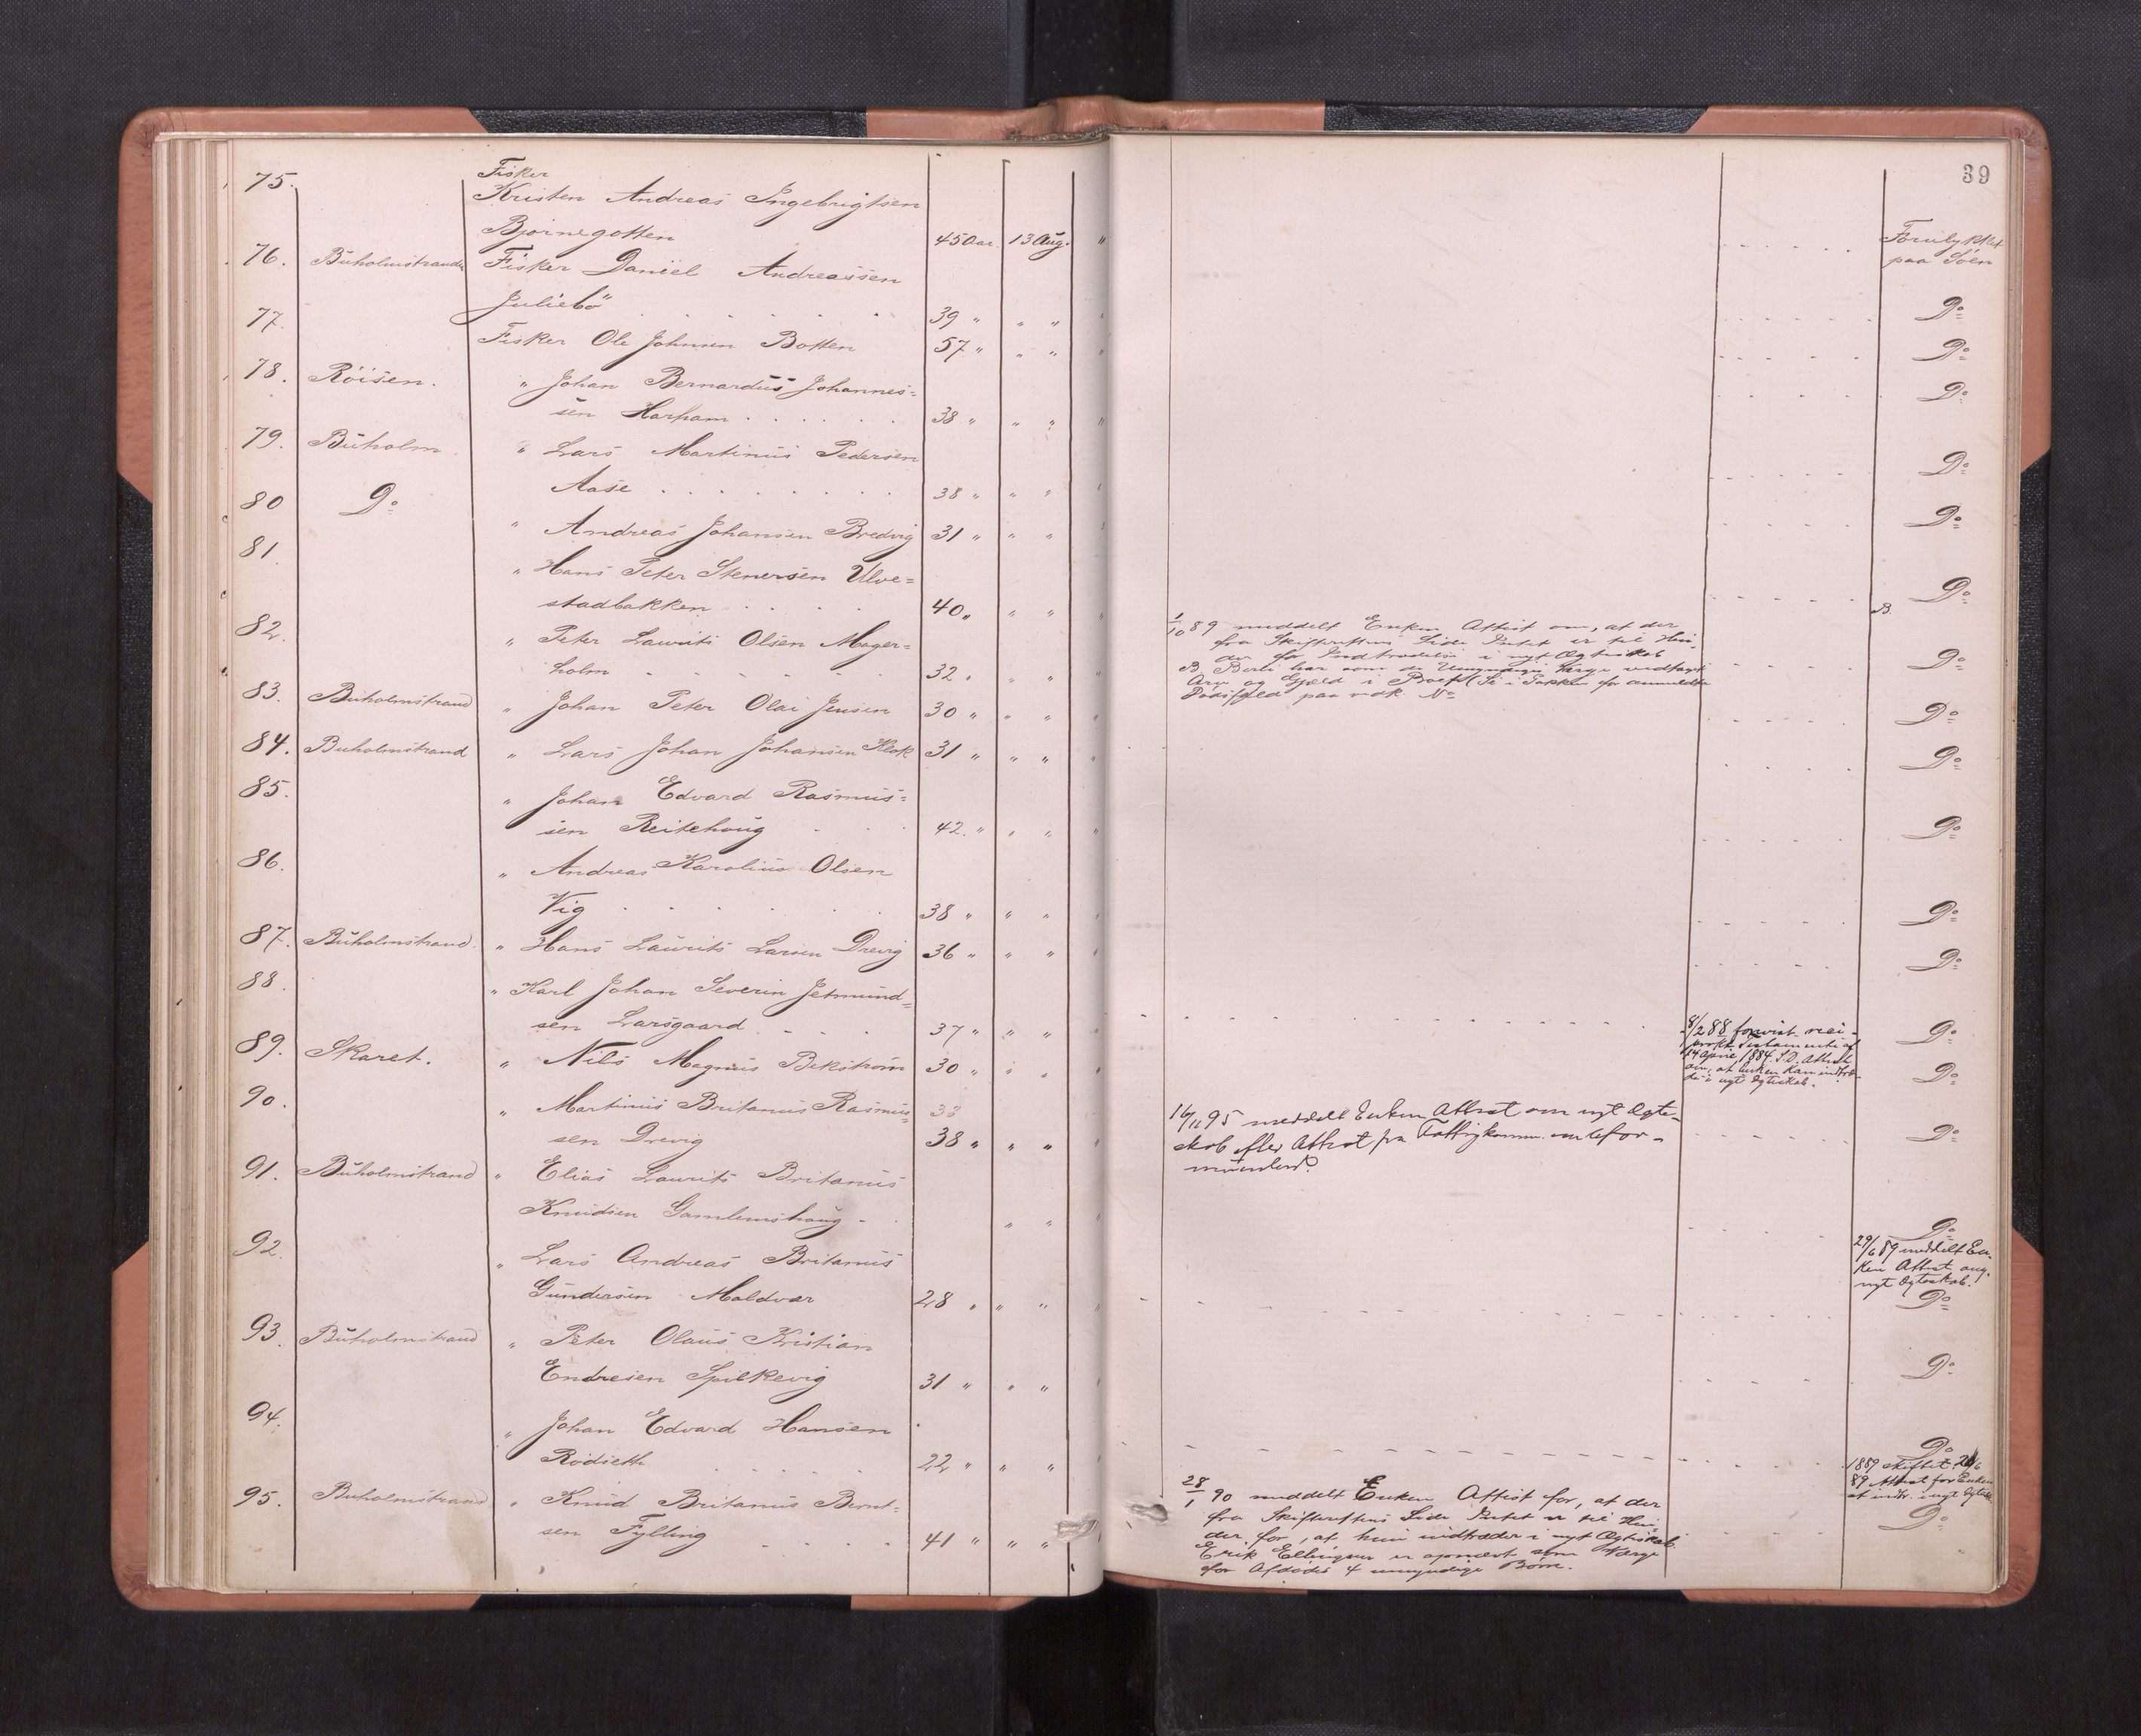 39
Fisker
75. Kristen Andreas Ingebrigtsen
Bjørnegotten 45 Aar. 13 Aug. " Forulykket
paa Søen
76. Buholmstranden Fisker Daniel Andreassen
Juliebö 39 " " " Do
77. Fisker Ole Johnsen Botten 57 " " " Do
78. Röisen. " Johan Bernardus Johannes=
sen Harham 38 " " " Do
79. Buholm " Lars Martinus Pedersen
Aase 38 " " " Do
80 Do " Andreas Johansen Bredvig 31 " " " Do
81 " Hans Peter Stenersen Ulve=
stadbakken 40 " " " Do
82. " Peter Laurits Olsen Mager=
holm 32 " " " Do
1/10 89 meddelt Enken Attest om, at der
fra Skifterettens Side Intet er til Hin-
der for Indtrædelse i nyt Ægteskab
B. Berli har som de Umyndiges Værge vedtaget
Arv og Gjæld i Boet (Se i Pakken for anmeldte
Dødsfald paa vedk. No
83. Buholmstrand " Johan Peter Olai Jensen 30 " " " Do
84. Buholmstrand " Lars Johan Johansen Klok 31 " " " Do
85. " Johan Edvard Rasmus=
sen Reitehoug 42. " " " Do
86. " Andreas Karolius Olsen
Vig 38 " " " Do
87. Buholmstrand. " Hans Laurits Larsen Drevig 36 " " " Do
88 " Karl Johan Severin Jetmund=
sen Larsgaard 37 " " " Do
8/2 88 forevist reci-
prokt Testamente af
24 April 1884. S.D. Attest
om, at Enken kan indtræ-
de i nyt Ægteskab.
89. Skaret. " Nils Magnus Bekström 30 " " " Do
90. " Martinus Britanus Rasmus=
sen Drevig 38 " " " Do
16/11 95 meddelt Enken Attest om nyt Ægte-
skab efter Attest fra Fattigkomm.
91. Buholmstrand " Elias Laurits Britanus
Knudsen Gamlemshoug " " Do
92. " Lars Andreas Britanus
Gundersen Moldvær 28 " " " Do
29/6 89 meddelt En-
ken Attest ang.
nyt Ægteskab.
93. Buholmstrand " Peter Olaus Kristian
Endresen Spilkevig 31 " " " Do
94. " Johan Edvard Hansen
Rödseth 22 " " " Do
1889 skiftet.
89 Attest for Enken
95. Buholmstrand " Knud Britanus Bernt=
sen Fylling 41 " " " Do
28/1 90 meddelt Enken Attest for, at der
fra Skifterettens Side Intet er til Hin-
der for, at hun indtræder i nyt Ægteskab.
Erik Ellingsen er opnævnt som Værge
for Afdødes 4 umyndige Børn.